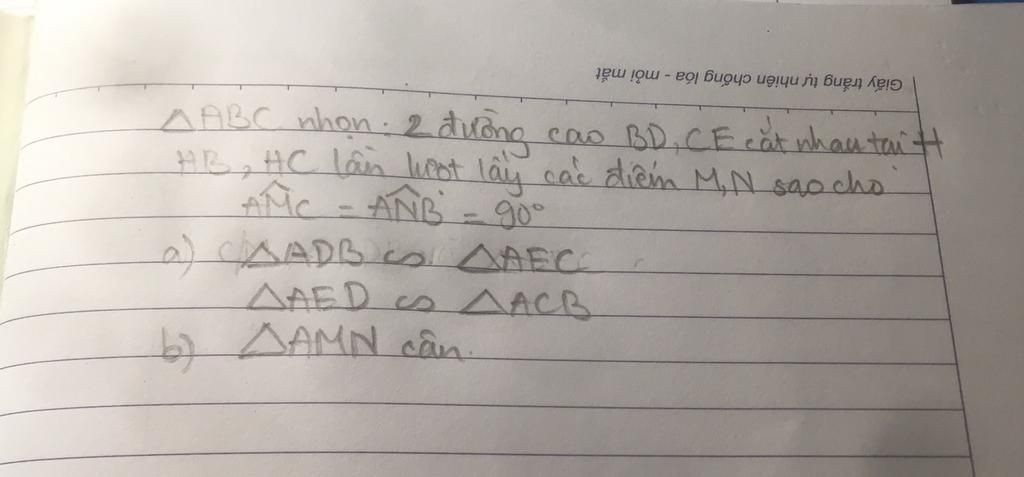 Giấy trắng tự nhiên chống lóa - mỏi mắt
△ABC nhọn. 2 đường cao BD, CE cắt nhau tại H
HB, HC lần lượt lấy các điểm M, N sao cho
AM̂C = AN̂B = 90°
a) △ADB ∽ △AEC
△AED ∽ △ACB
b) △AMN cân.